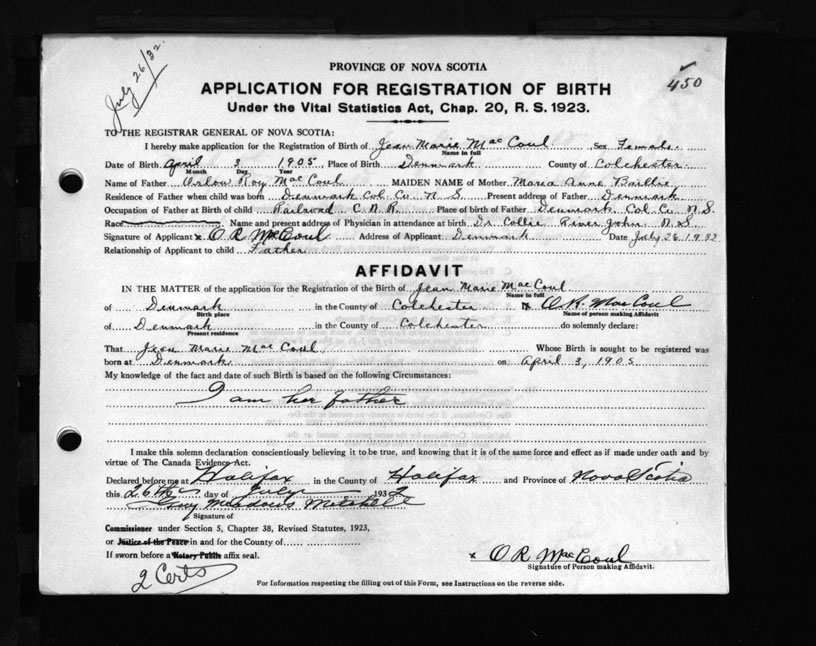 July 26/32.
450
PROVINCE OF NOVA SCOTIA
APPLICATION FOR REGISTRATION OF BIRTH
Under the Vital Statistics Act, Chap. 20, R. S. 1923.
TO THE REGISTRAR GENERAL OF NOVA SCOTIA:
I hereby make application for the Registration of Birth of Jean Marie MacCoul Sex Female.
Name in full
Date of Birth April 3 1905 Place of Birth Denmark County of Colchester
Month Day Year
Name of Father Arlow Roy MacCoul MAIDEN NAME of Mother Maria Anne Baillie
Residence of Father when child was born Denmark Col. Co. N S Present address of Father Denmark
Occupation of Father at Birth of child Railroad C. N. R. Place of birth of Father Denmark Col. Co. N.S
Race Name and present address of Physician in attendance at birth Dr. Collie River John N.S
Signature of Applicant x O R MacCoul Address of Applicant Denmark Date July 26 1932
Relationship of Applicant to child Father
AFFIDAVIT
IN THE MATTER of the application for the Registration of the Birth of Jean Marie MacCoul
Name in full
of Denmark in the County of Colchester I, x O R. MacCoul
Birth place Name of person making Affidavit
of Denmark in the County of Colchester do solemnly declare:
Present residence
That Jean Marie MacCoul Whose Birth is sought to be registered was
born at Denmark on April 3, 1905
My knowledge of the fact and date of such Birth is based on the following Circumstances:
I am her father
I make this solemn declaration conscientiously believing it to be true, and knowing that it is of the same force and effect as if made under oath and by
virtue of The Canada Evidence Act.
Declared before me at Halifax in the County of Halifax and Province of Nova Scotia
this 26th day of July 1932
Signature of
Commissioner under Section 5, Chapter 38, Revised Statutes, 1923,
or Justice of the Peace in and for the County of
If sworn before a Notary Public affix seal.
x O R MacCoul
Signature of Person making Affidavit.
2 Certs
For Information respecting the filling out of this Form, see Instructions on the reverse side.